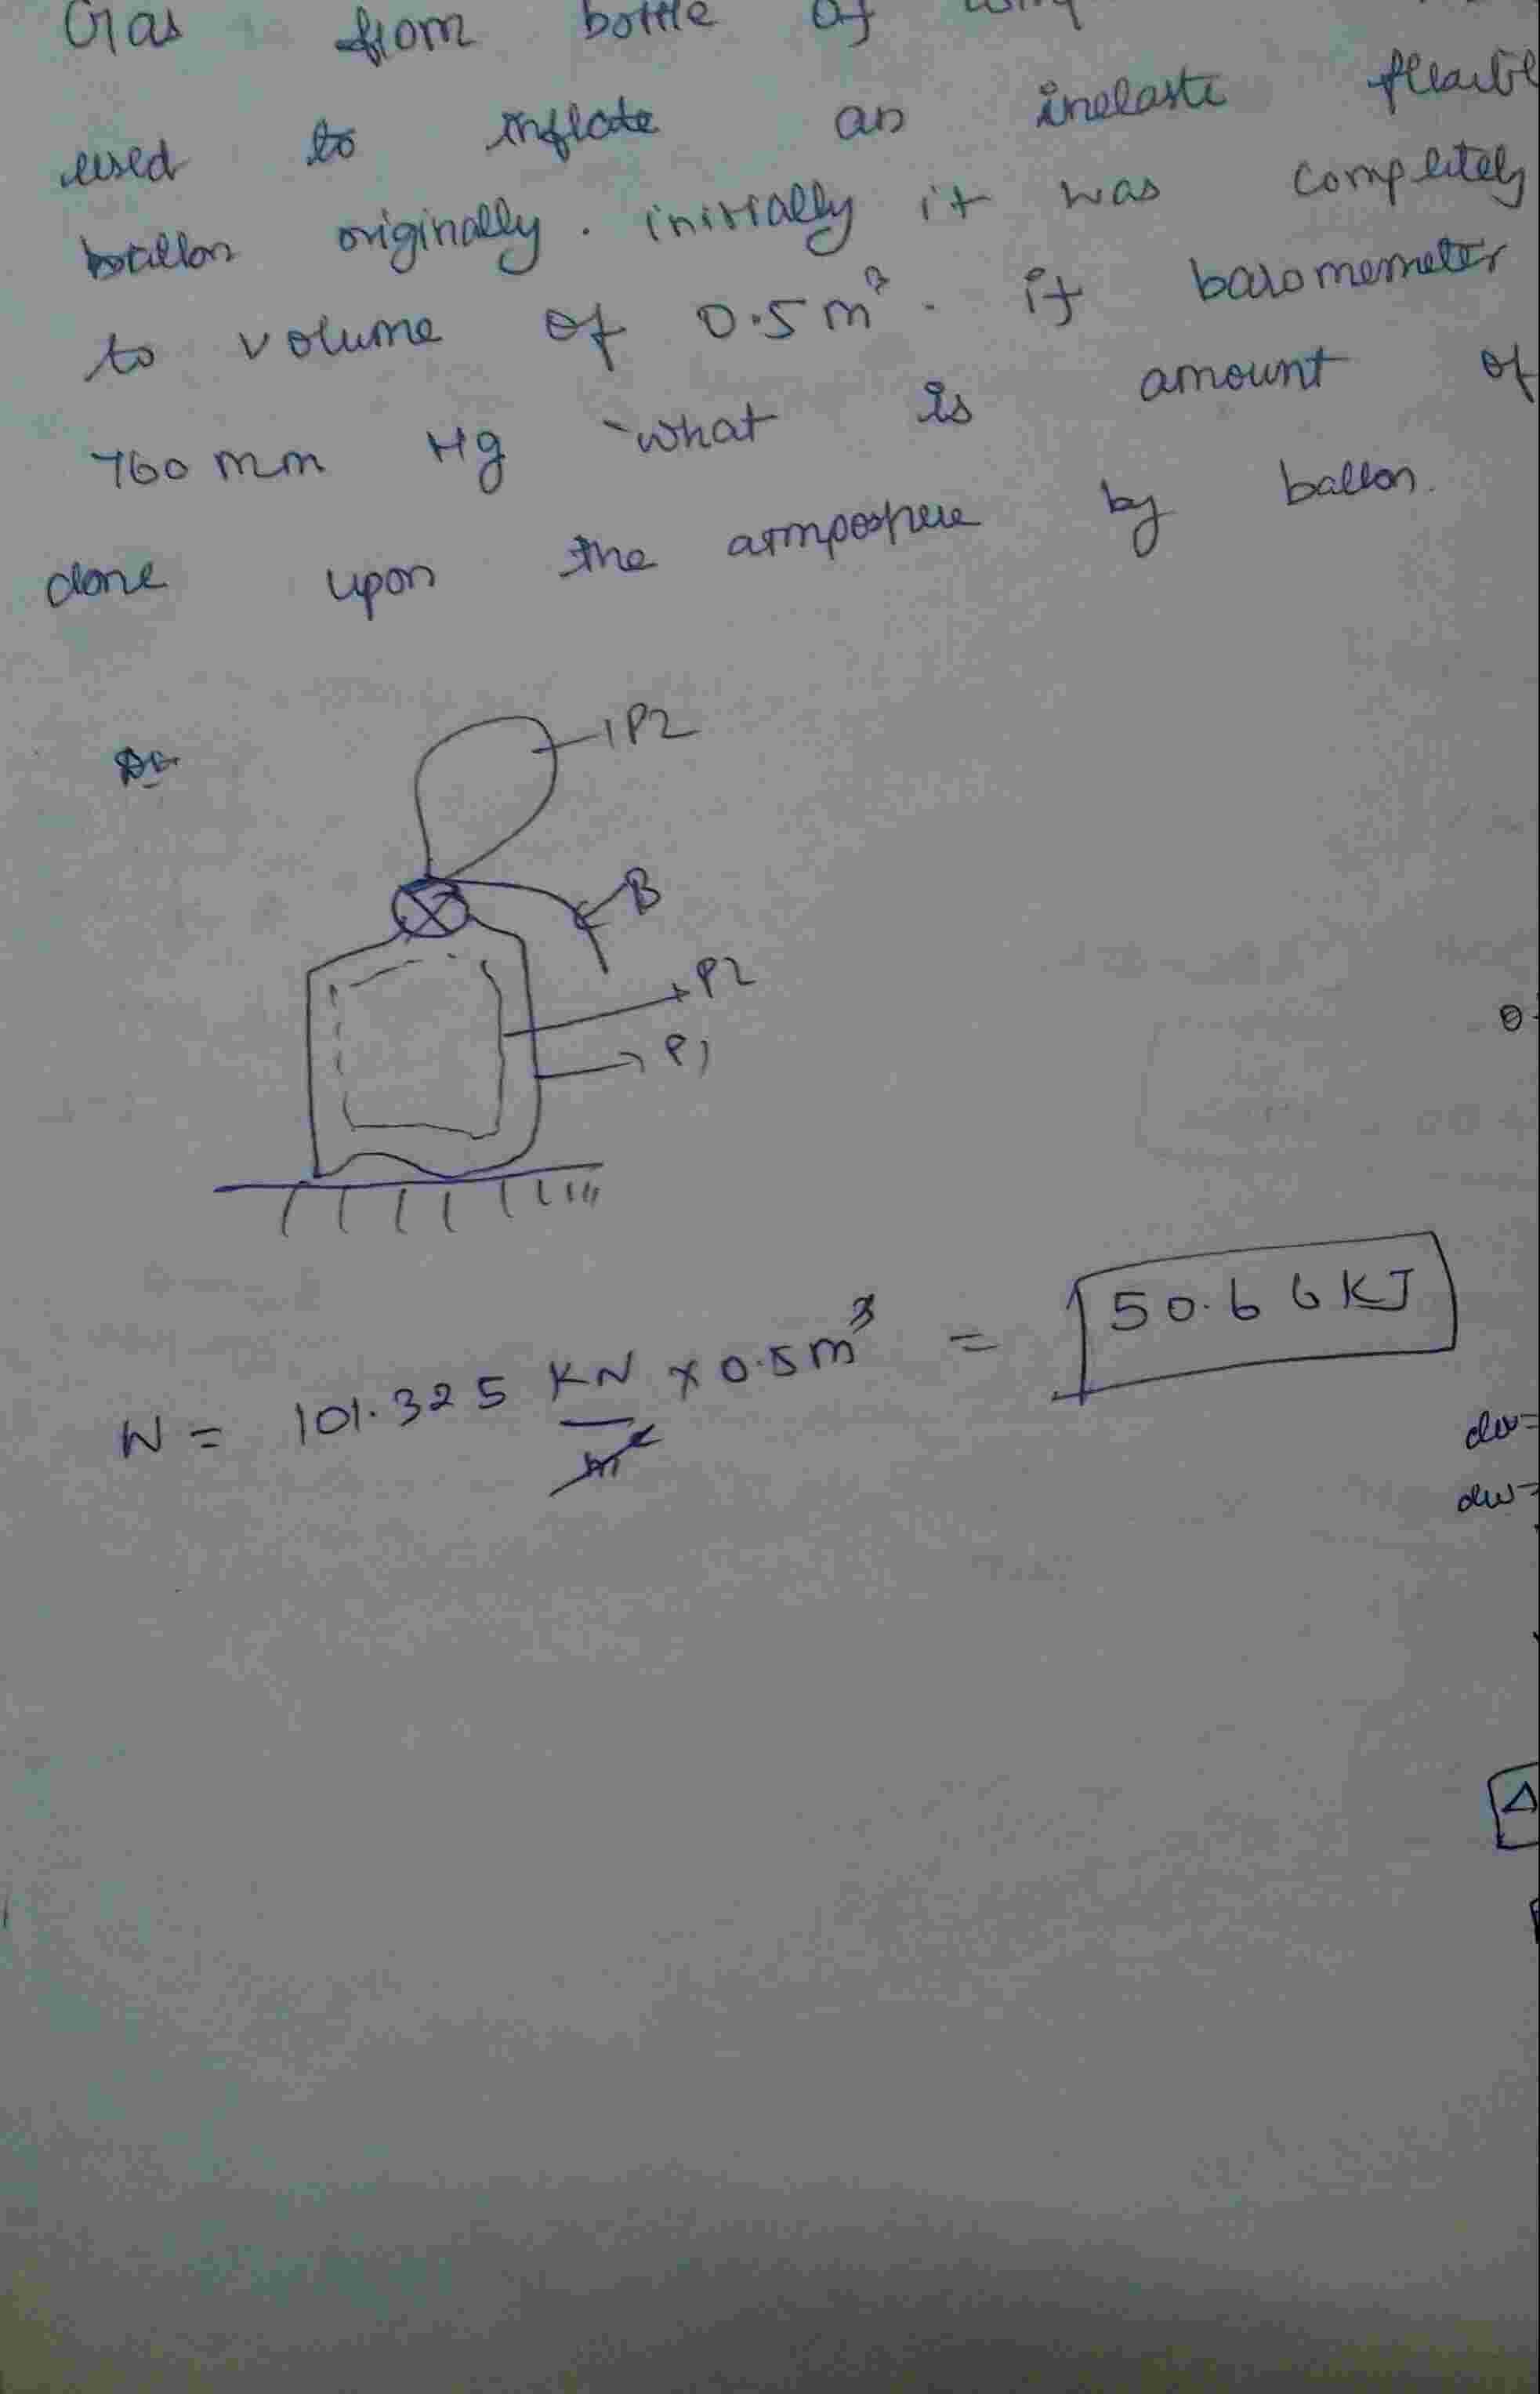 Gas from bottle of
used to inflate an inelastic flexible
ballon originally. initially it was completely
to volume of 0.5 m³. if baromemeter
760 mm Hg what is amount of
done upon the atmposphere by ballon.
P2
B
P2
P1
W = 101.325 KN/m² x 0.5 m³ = 50.66 KJ
dw=
dw=
Δ